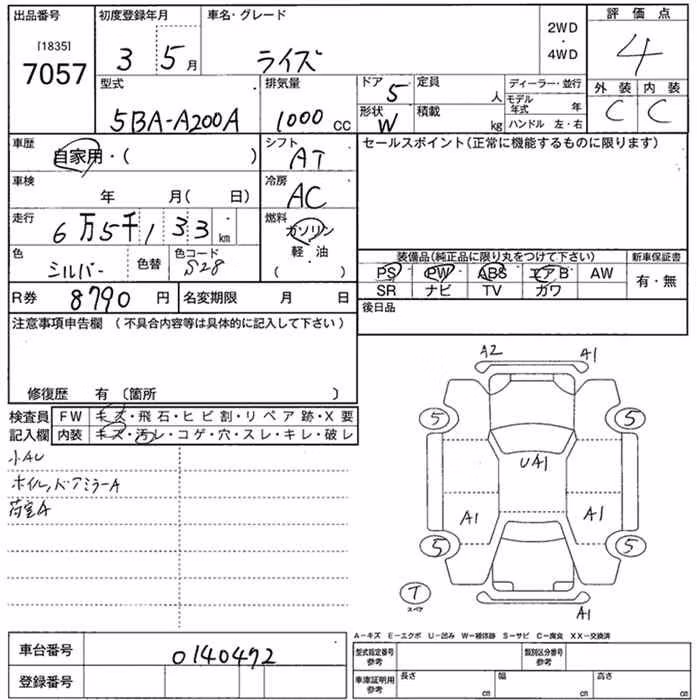 出品番号 初度登録年月 車名・グレード 2WD・4WD 評価点
[1835]
7057 3 5月 ライズ 4
型式 排気量 ドア 5 定員 人 ディーラー・並行 外装 内装
5BA-A200A 1000 CC 形状 W 積載 kg モデル年式 年 C C
ハンドル 左・右
車歴 自家用・( ) シフト AT セールスポイント(正常に機能するものに限ります)
車検 年 月( 日) 冷房 AC
走行 6万5千133km 燃料 ガソリン
軽・油
( )
色 シルバー 色替 色コード S28
装備品(純正品に限り丸をつけて下さい) 新車保証書
PS PW ABS エアB AW 有・無
SR ナビ TV カワ
R券 8790円 名変期限 月 日 後日品
注意事項申告欄 (不具合内容等は具体的に記入して下さい)
修復歴 有 〔箇所 〕
検査員 FW キズ・飛石・ヒビ割・リペア跡・X要
記入欄 内装 キズ・汚レ・コゲ・穴・スレ・キレ・破レ
小AU
ホイル,ドアミラーA
荷室A
A2 A1
5 5
UA1
A1 A1
5 5
T
スペア
A1
A-キズ E-エクボ U-凹み W-補修跡 S-サビ C-腐食 XX-交換済
車台番号 0140472 型式指定番号 参考 類別区分番号 参考
登録番号 車庫証明用 参考 長さ cm 幅 cm 高さ cm